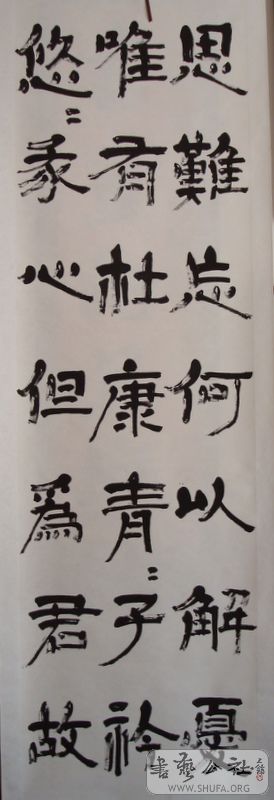 思難忘何以解憂
唯有杜康青〻子衿
悠〻我心但為君故
書藝公社
WWW.SHUFA.ORG